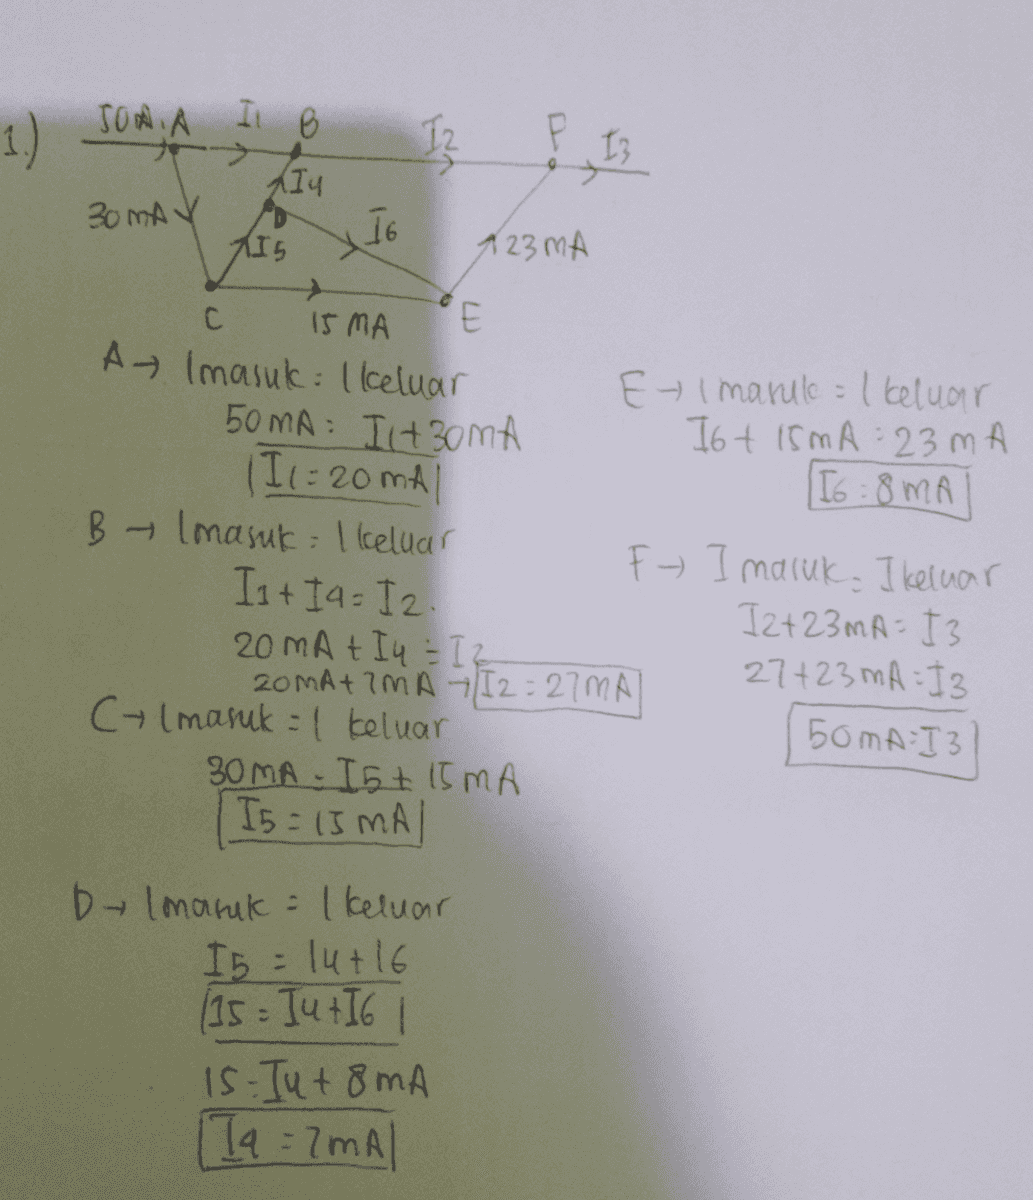 1.)
50 mA A I1 B I2 F I3
I4
30 mA D I6
I5 23 mA
C 15 MA E
A → I masuk = I keluar
50 mA = I1 + 30 mA
I1 = 20 mA
B → I masuk = I keluar
I1 + I4 = I2.
20 mA + I4 = I2
20 mA + 7 mA → I2 = 27 mA
C → I masuk = I keluar
30 mA = I5 + 15 mA
I5 = 15 mA
D → I masuk = I keluar
I5 = I4 + I6
15 = I4 + I6
15 = I4 + 8 mA
I4 = 7 mA
E → I masuk = I keluar
I6 + 15 mA = 23 mA
I6 = 8 mA
F → I masuk = I keluar
I2 + 23 mA = I3
27 + 23 mA = I3
50 mA = I3